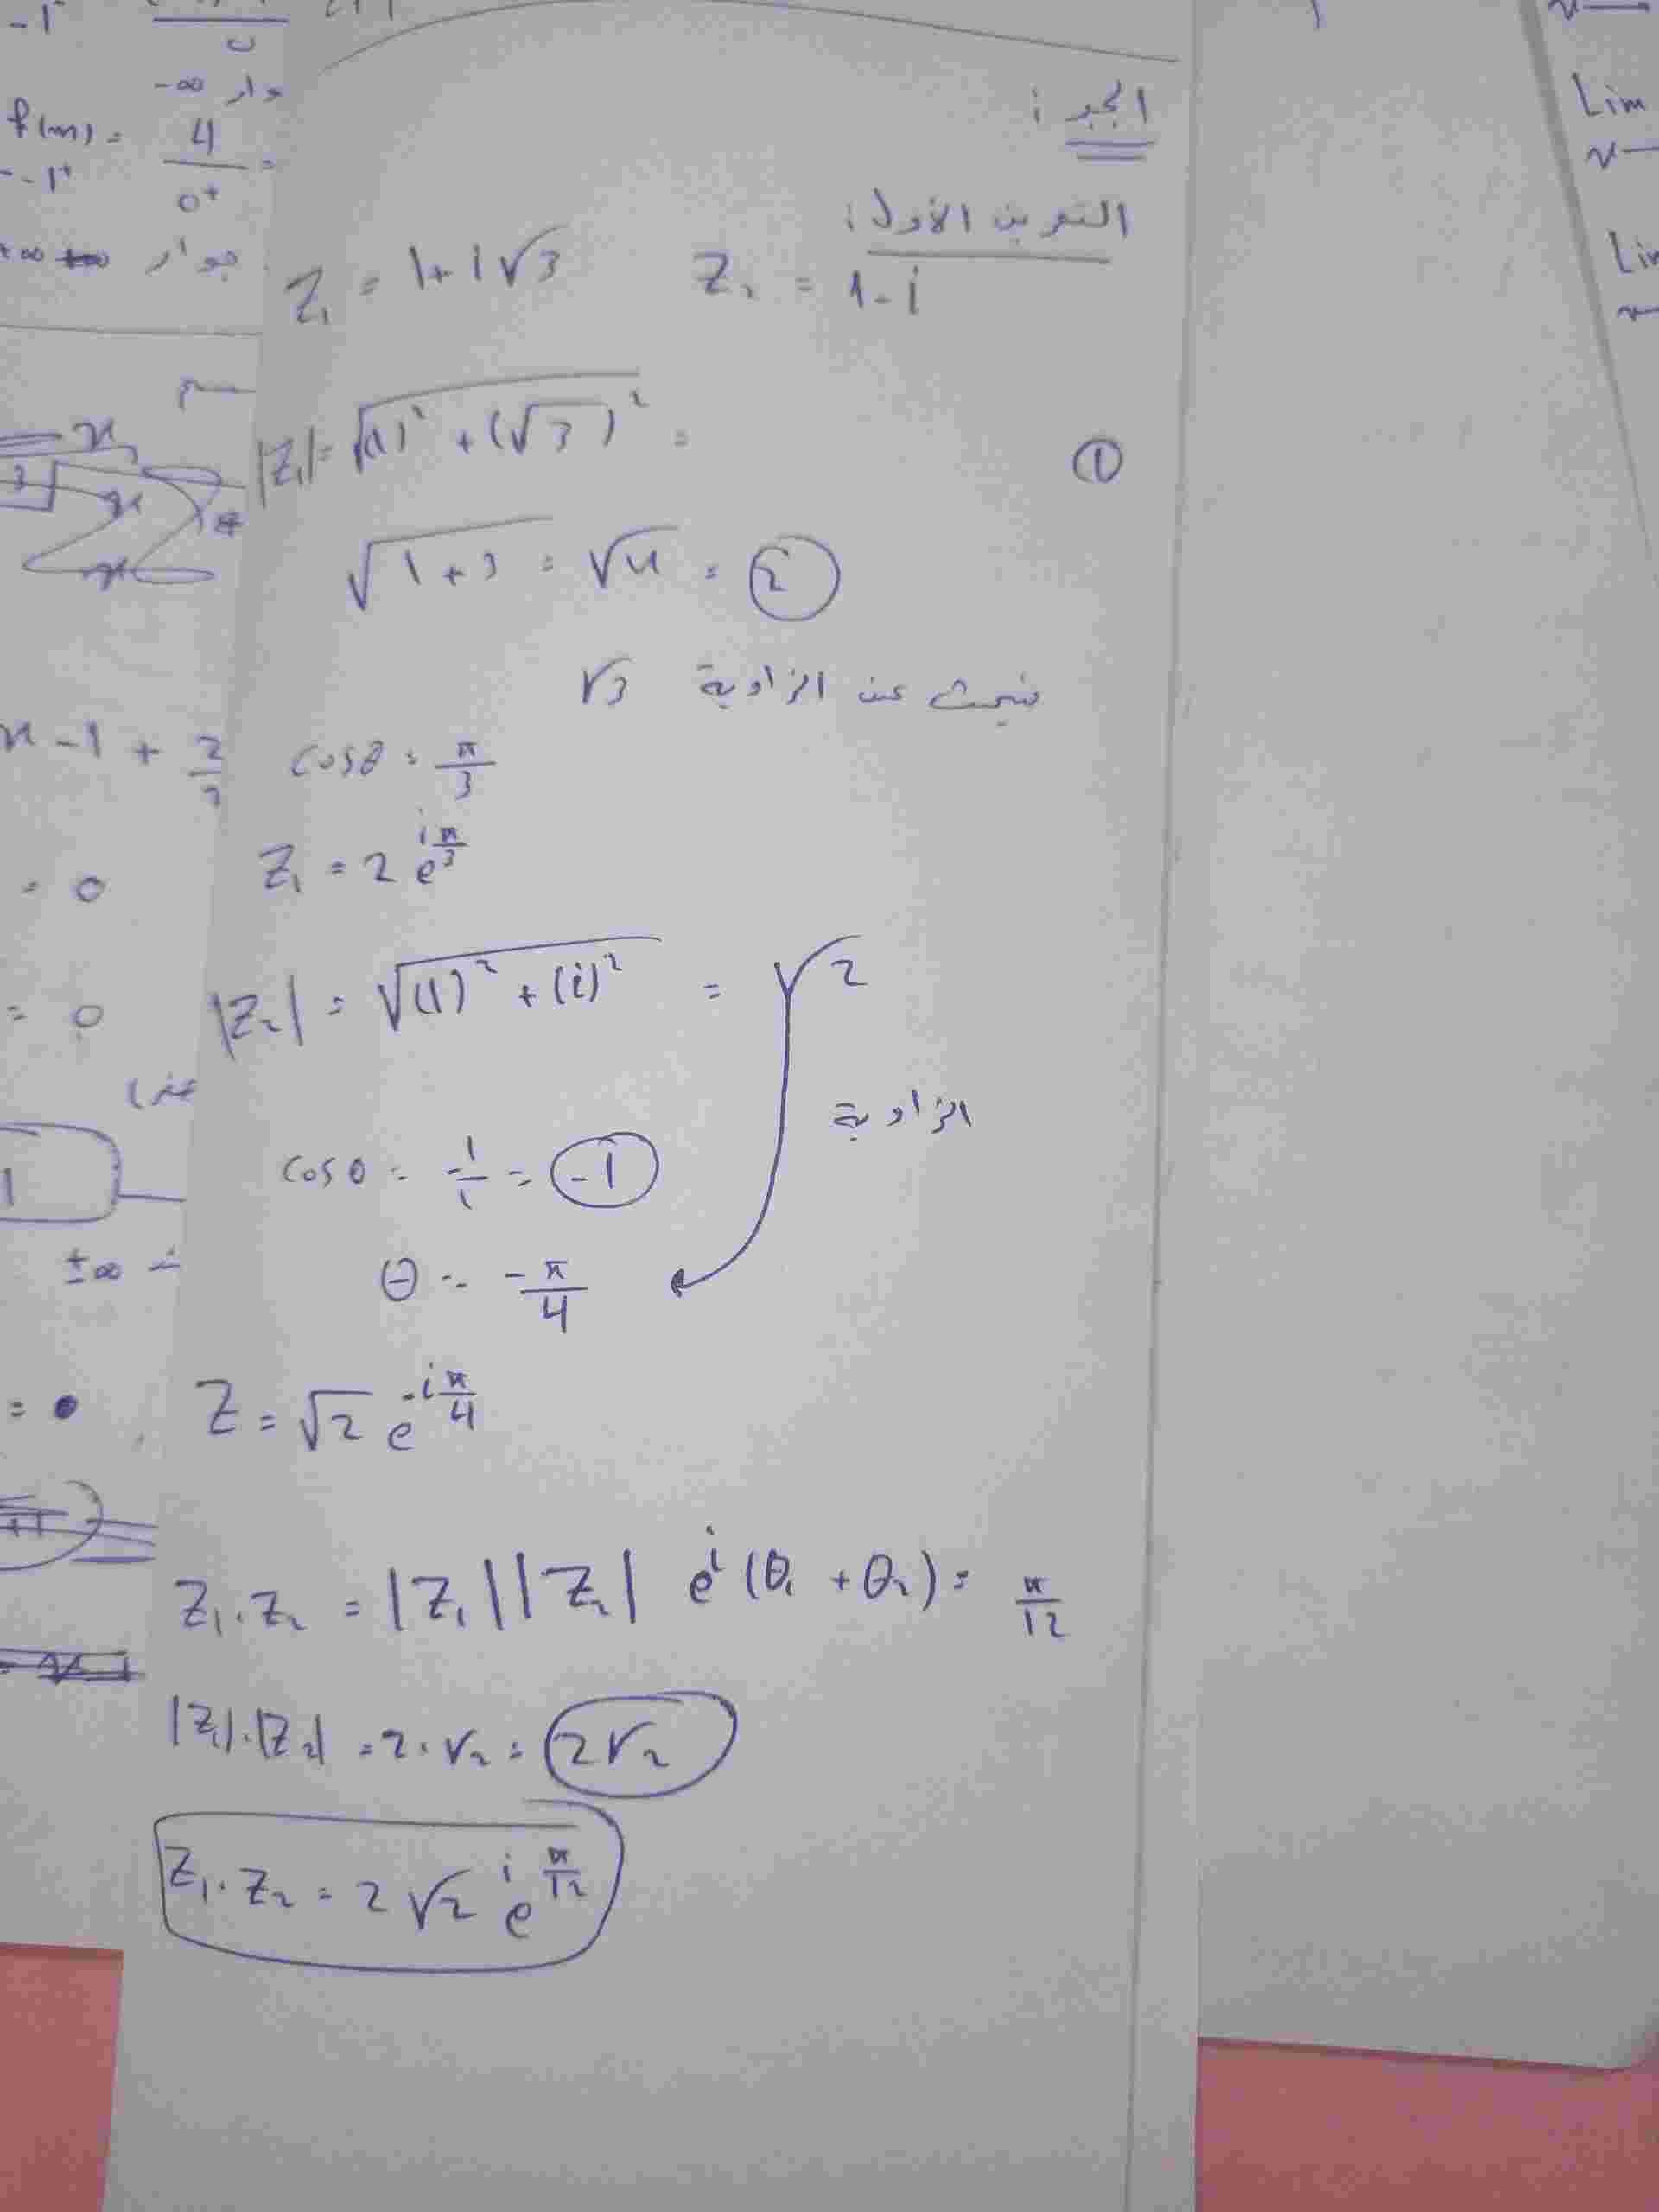 الجبر :
التمرين الأول :
Z₁ = 1+i√3    Z₂ = 1-i
①
|Z₁| = √((1)² + (√3)²) =
√(1+3) = √4 = 2
نبحث عن الزاوية √3
cosθ = π/3
Z₁ = 2 e^(iπ/3)
|Z₂| = √((1)² + (i)²) = √2
الزاوية
cosθ = -1/1 = -1
θ = -π/4
Z = √2 e^(-iπ/4)
Z₁.Z₂ = |Z₁||Z₂| e^i(θ₁ + θ₂) = π/12
|Z₁|.|Z₂| = 2.√2 = 2√2
Z₁.Z₂ = 2√2 e^(iπ/12)
-1
-∞ جوار
f(x) = 4/0⁺ =
-1⁺
+∞ جوار
x-1 +
= 0
= 0
عند
1
±∞
=
Lim
x
Lim
x